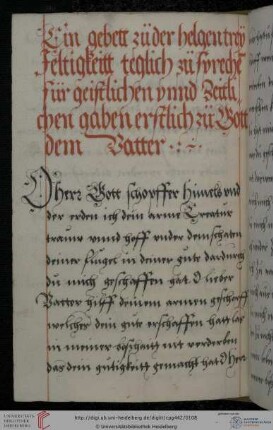 Ein gebett zü der helgen trÿ
feltigkeitt teglich zü sprechē
für geistlichen vnnd Zeitli
chen gaben erstlich zü Gott
dem Vatter
O herr Gott schopffer himels vnd
der erden ich dein arme Creatur
traure vnnd hoff vnder dem schaten
deiner flügel in deiner gute dardurch
du mich geschaffen hat. O lieber
Vattor hilff deinem armen geschopff
welches dein gute erschaffen hatt las
in meiner nit verderben
das dein gutigkeitt gemacht hat O herr
http://digi.ub.uni-heidelberg.de/diglit/cpg447/0108
© Universitätsbibliothek Heidelberg